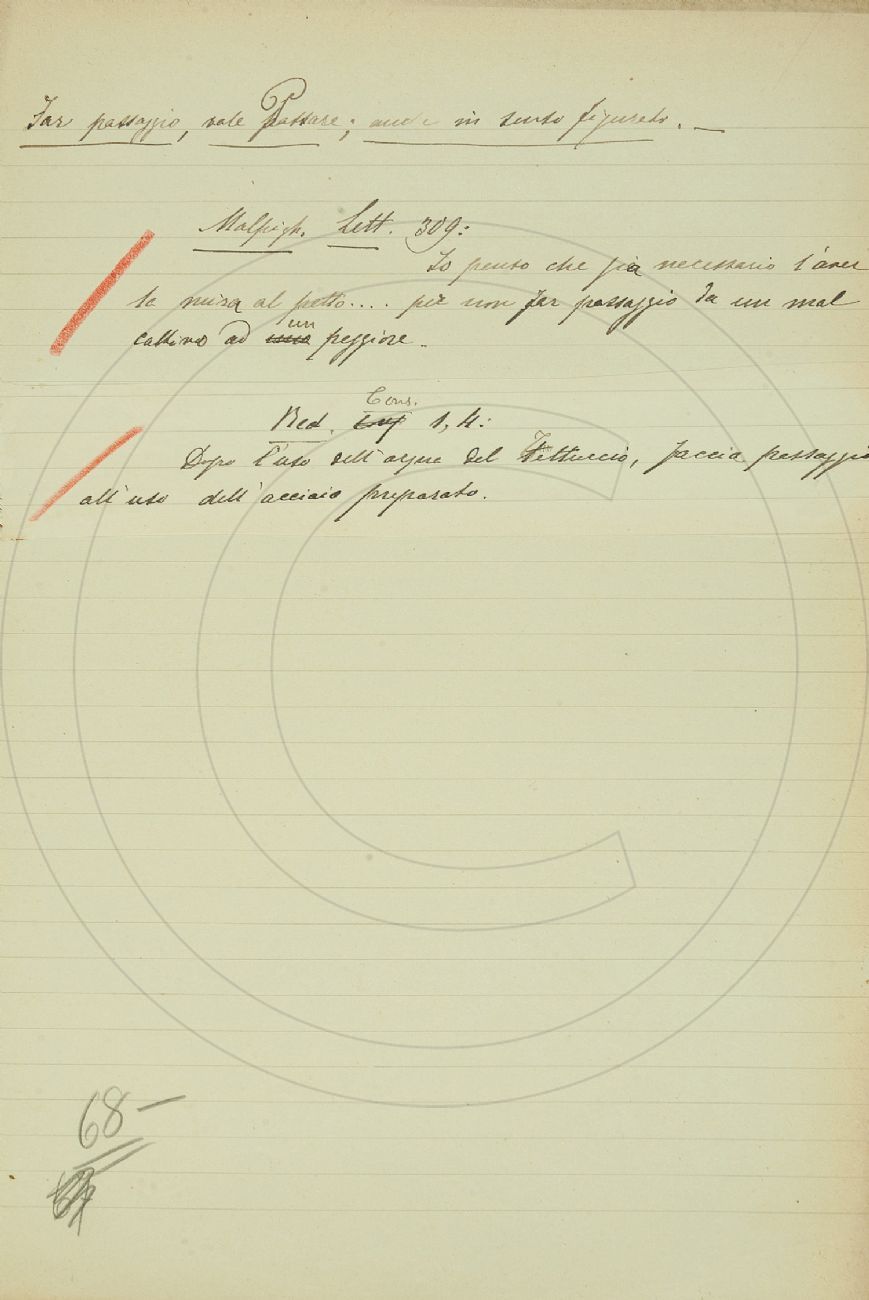 Far passaggio, vale Passare; anche in senso figurato. —
Malpigh. Lett. 309:
Io penso che sia necessario l'aver
la mira al petto.... per non far passaggio da un mal
cattivo ad un peggiore.
Red. Cons. 1, 4:
Dopo l'uso dell'acqua del Tettuccio, faccia passaggio
all'uso dell'acciaio preparato.
68 —